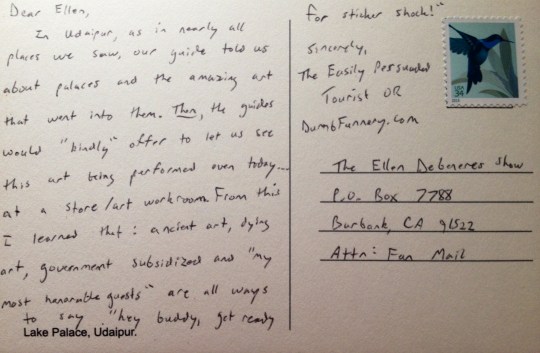 Dear Ellen,
In Udaipur, as in nearly all
places we saw, our guide told us
about palaces and the amazing art
that went into them. Then, the guides
would "kindly" offer to let us see
this art being performed even today...
at a store/art workroom. From this
I learned that: ancient art, dying
art, government subsidized and "my
most honorable guests" are all ways
to say "hey buddy, get ready
Lake Palace, Udaipur.
for sticker shock!"
Sincerely,
The Easily Persuaded
Tourist OR
DumbFunnery.com
USA
34
The Ellen Degeneres Show
P.O. Box 7788
Burbank, CA 91522
Attn: Fan Mail